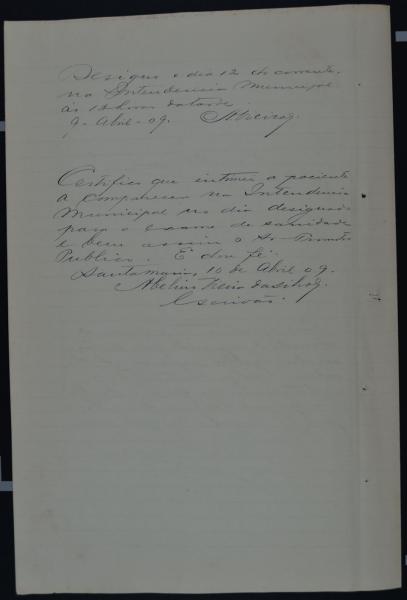 Designo o dia 12 do corrente,
na Intendencia Municipal
ás 12 horas da tarde
9-Abril-09.
Certifico que intimei a paciente
a comparecer na Intendencia
Municipal no dia designado
para o exame de sanidade
e bem assim o Sr. Promotor
Publico. E dou fé.
Santa Maria, 10 de Abril 09.
Escrivão.